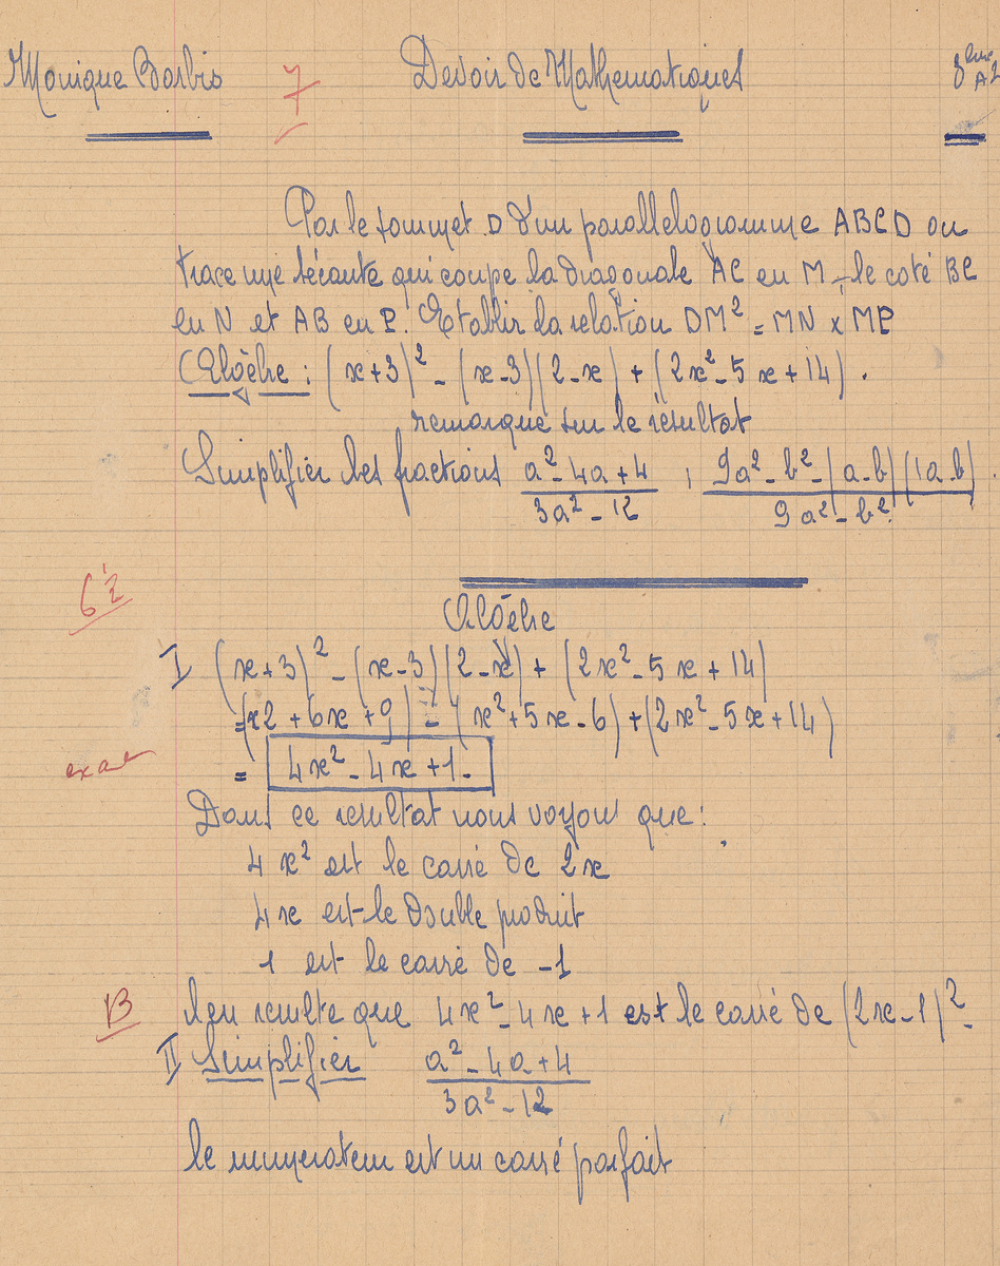 Monique Borbis 7 Devoir de Mathematiques 3ème A2
Par le sommet D d'un parallelogramme ABCD on
trace une sécante qui coupe la diagonale AC en M, le coté BC
en N et AB en P. Etablir la relation DM² = MN x MP
Algèbre : (x+3)² - (x-3)(2-x) + (2x²-5x+14).
remarque sur le résultat
Simplifier les fractions a²-4a+4 / 3a²-12 , 9a²-b²-(a-b)(1a-b) / 9a²-b².
Algèbre
I (x+3)² - (x-3)(2-x) + (2x²-5x+14)
=(x2+6x+9) - (x²+5x-6)+(2x²-5x+14)
exact = 4x²-4x+1.
Dans ce resultat nous voyons que:
4x² est le carré de 2x
4x est le double produit
1 est le carré de -1
B Il en resulte que 4x²-4x+1 est le carré de (2x-1)².
II Simplifier a²-4a+4 / 3a²-12
le numerateur est un carré parfait